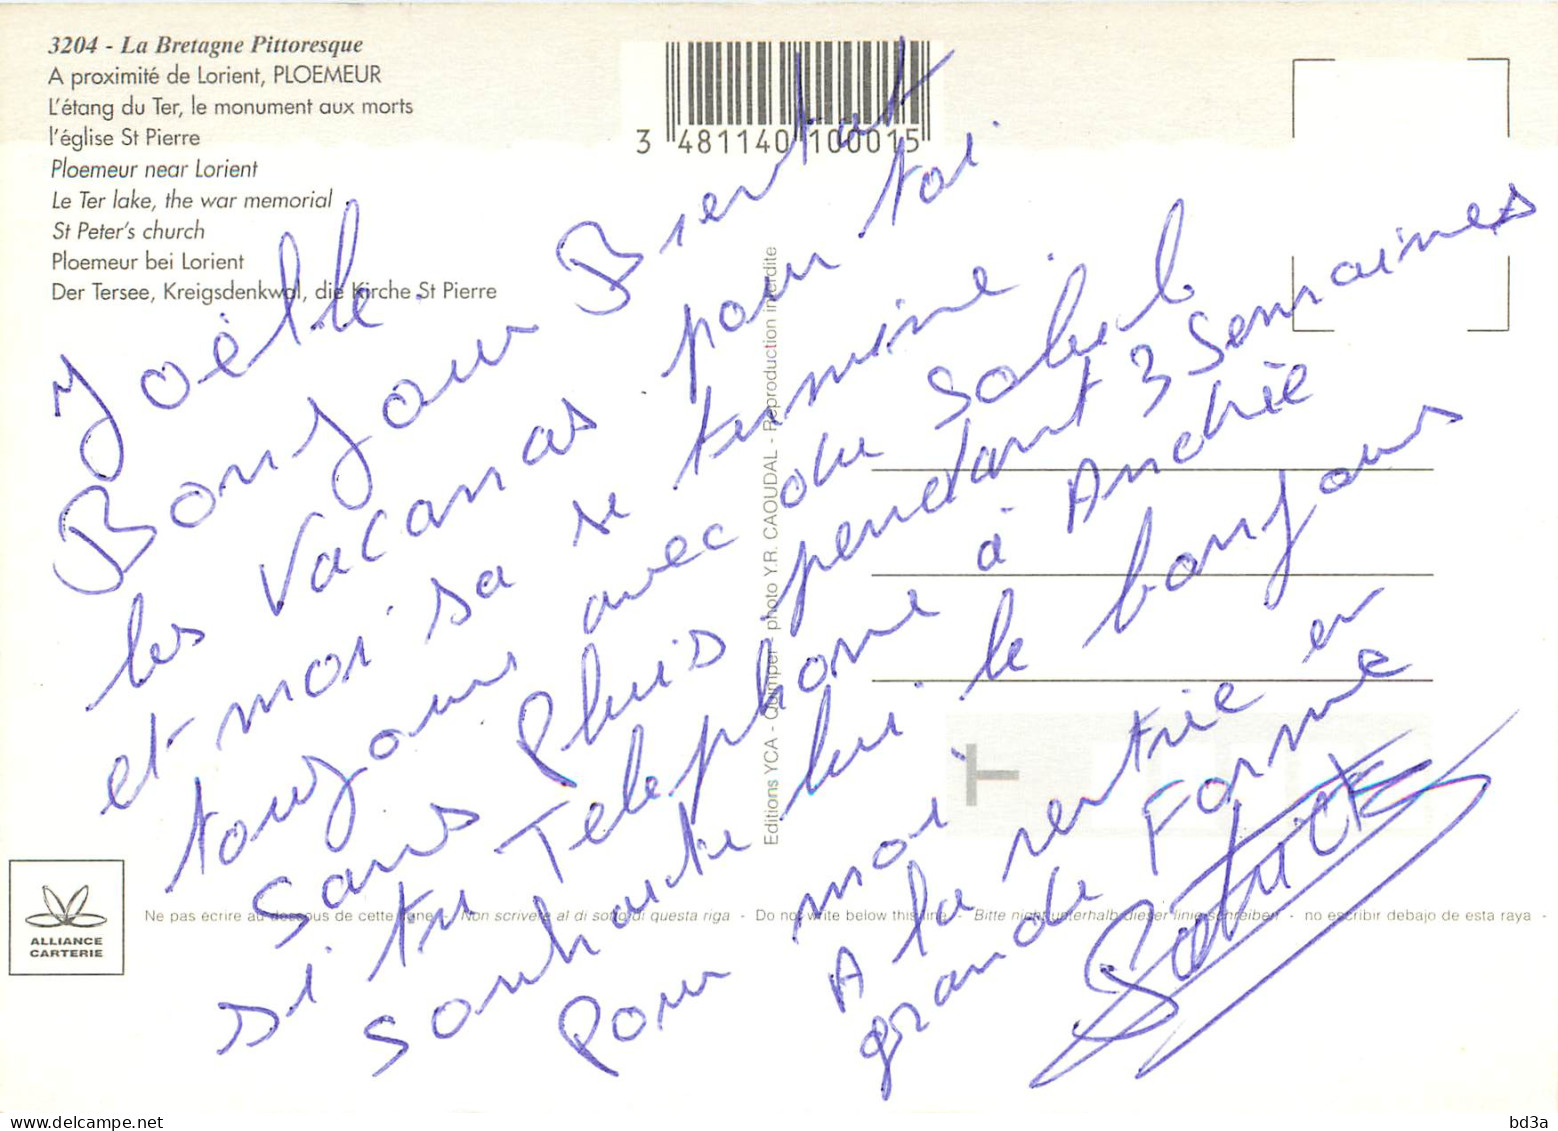 3204 - La Bretagne Pittoresque
A proximité de Lorient, PLOEMEUR
L'étang du Ter, le monument aux morts
l'église St Pierre
Ploemeur near Lorient
Le Ter lake, the war memorial
St Peter's church
Ploemeur bei Lorient
Der Tersee, Kreigsdenkwal, die Kirche St Pierre
3 481140 100015
Joëlle.
Bonjour Bientot
les Vacanas pour toi
et moi sa se termine.
toujours avec du Soleil
Sans Pluis pendant 3 Semaines
si tu Telephone à Andrée
souhaite lui le bonjour
Pour moi
A la rentrie en
grande Forme
Patrick
Editions YCA - Quimper - photo Y.R. CAOUDAL - Reproduction interdite
ALLIANCE
CARTERIE
Ne pas écrire au dessous de cette ligne - Non scrivere al di sotto di questa riga - Do not write below this line - Bitte nicht unterhalb dieser linie schreiben - no escribir debajo de esta raya -
www.delcampe.net
bd3a